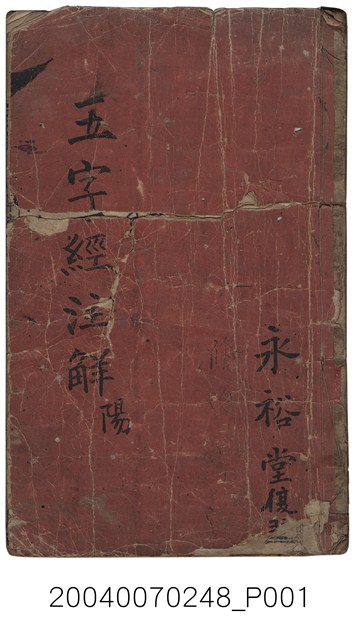 五字經注解
陽
永裕堂復
20040070248_P001